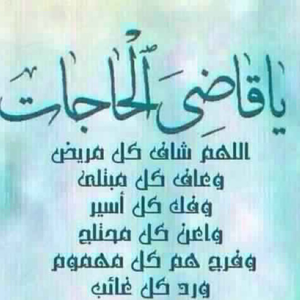 يَا قَاضِىَ ٱلْحَاجَات
اللهم شاف كل مريض
وعاف كل مبتلى
وفك كل أسير
واعن كل محتاج
وفرج هم كل مهموم
ورد كل غائب